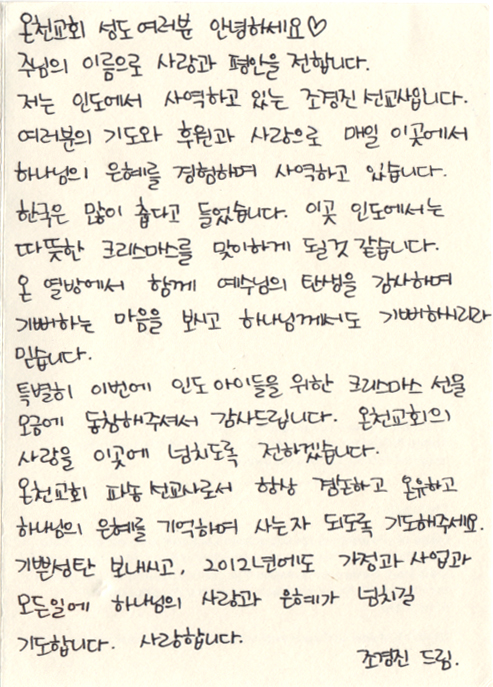 온천교회 성도 여러분 안녕하세요♡
주님의 이름으로 사랑과 평안을 전합니다.
저는 인도에서 사역하고 있는 조경진 선교사입니다.
여러분의 기도와 후원과 사랑으로 매일 이곳에서
하나님의 은혜를 경험하며 사역하고 있습니다.
한국은 많이 춥다고 들었습니다. 이곳 인도에서는
따뜻한 크리스마스를 맞이하게 될것 같습니다.
온 열방에서 함께 예수님의 탄생을 감사하며
기뻐하는 마음을 보시고 하나님께서도 기뻐하시리라
믿습니다.
특별히 이번에 인도 아이들을 위한 크리스마스 선물
모금에 동참해주셔서 감사드립니다. 온천교회의
사랑을 이곳에 넘치도록 전하겠습니다.
온천교회 파송 선교사로서 항상 겸손하고 온유하고
하나님의 은혜를 기억하며 사는자 되도록 기도해주세요.
기쁜성탄 보내시고, 2012년에도 가정과 사업과
모든일에 하나님의 사랑과 은혜가 넘치길
기도합니다. 사랑합니다.
조경진 드림.